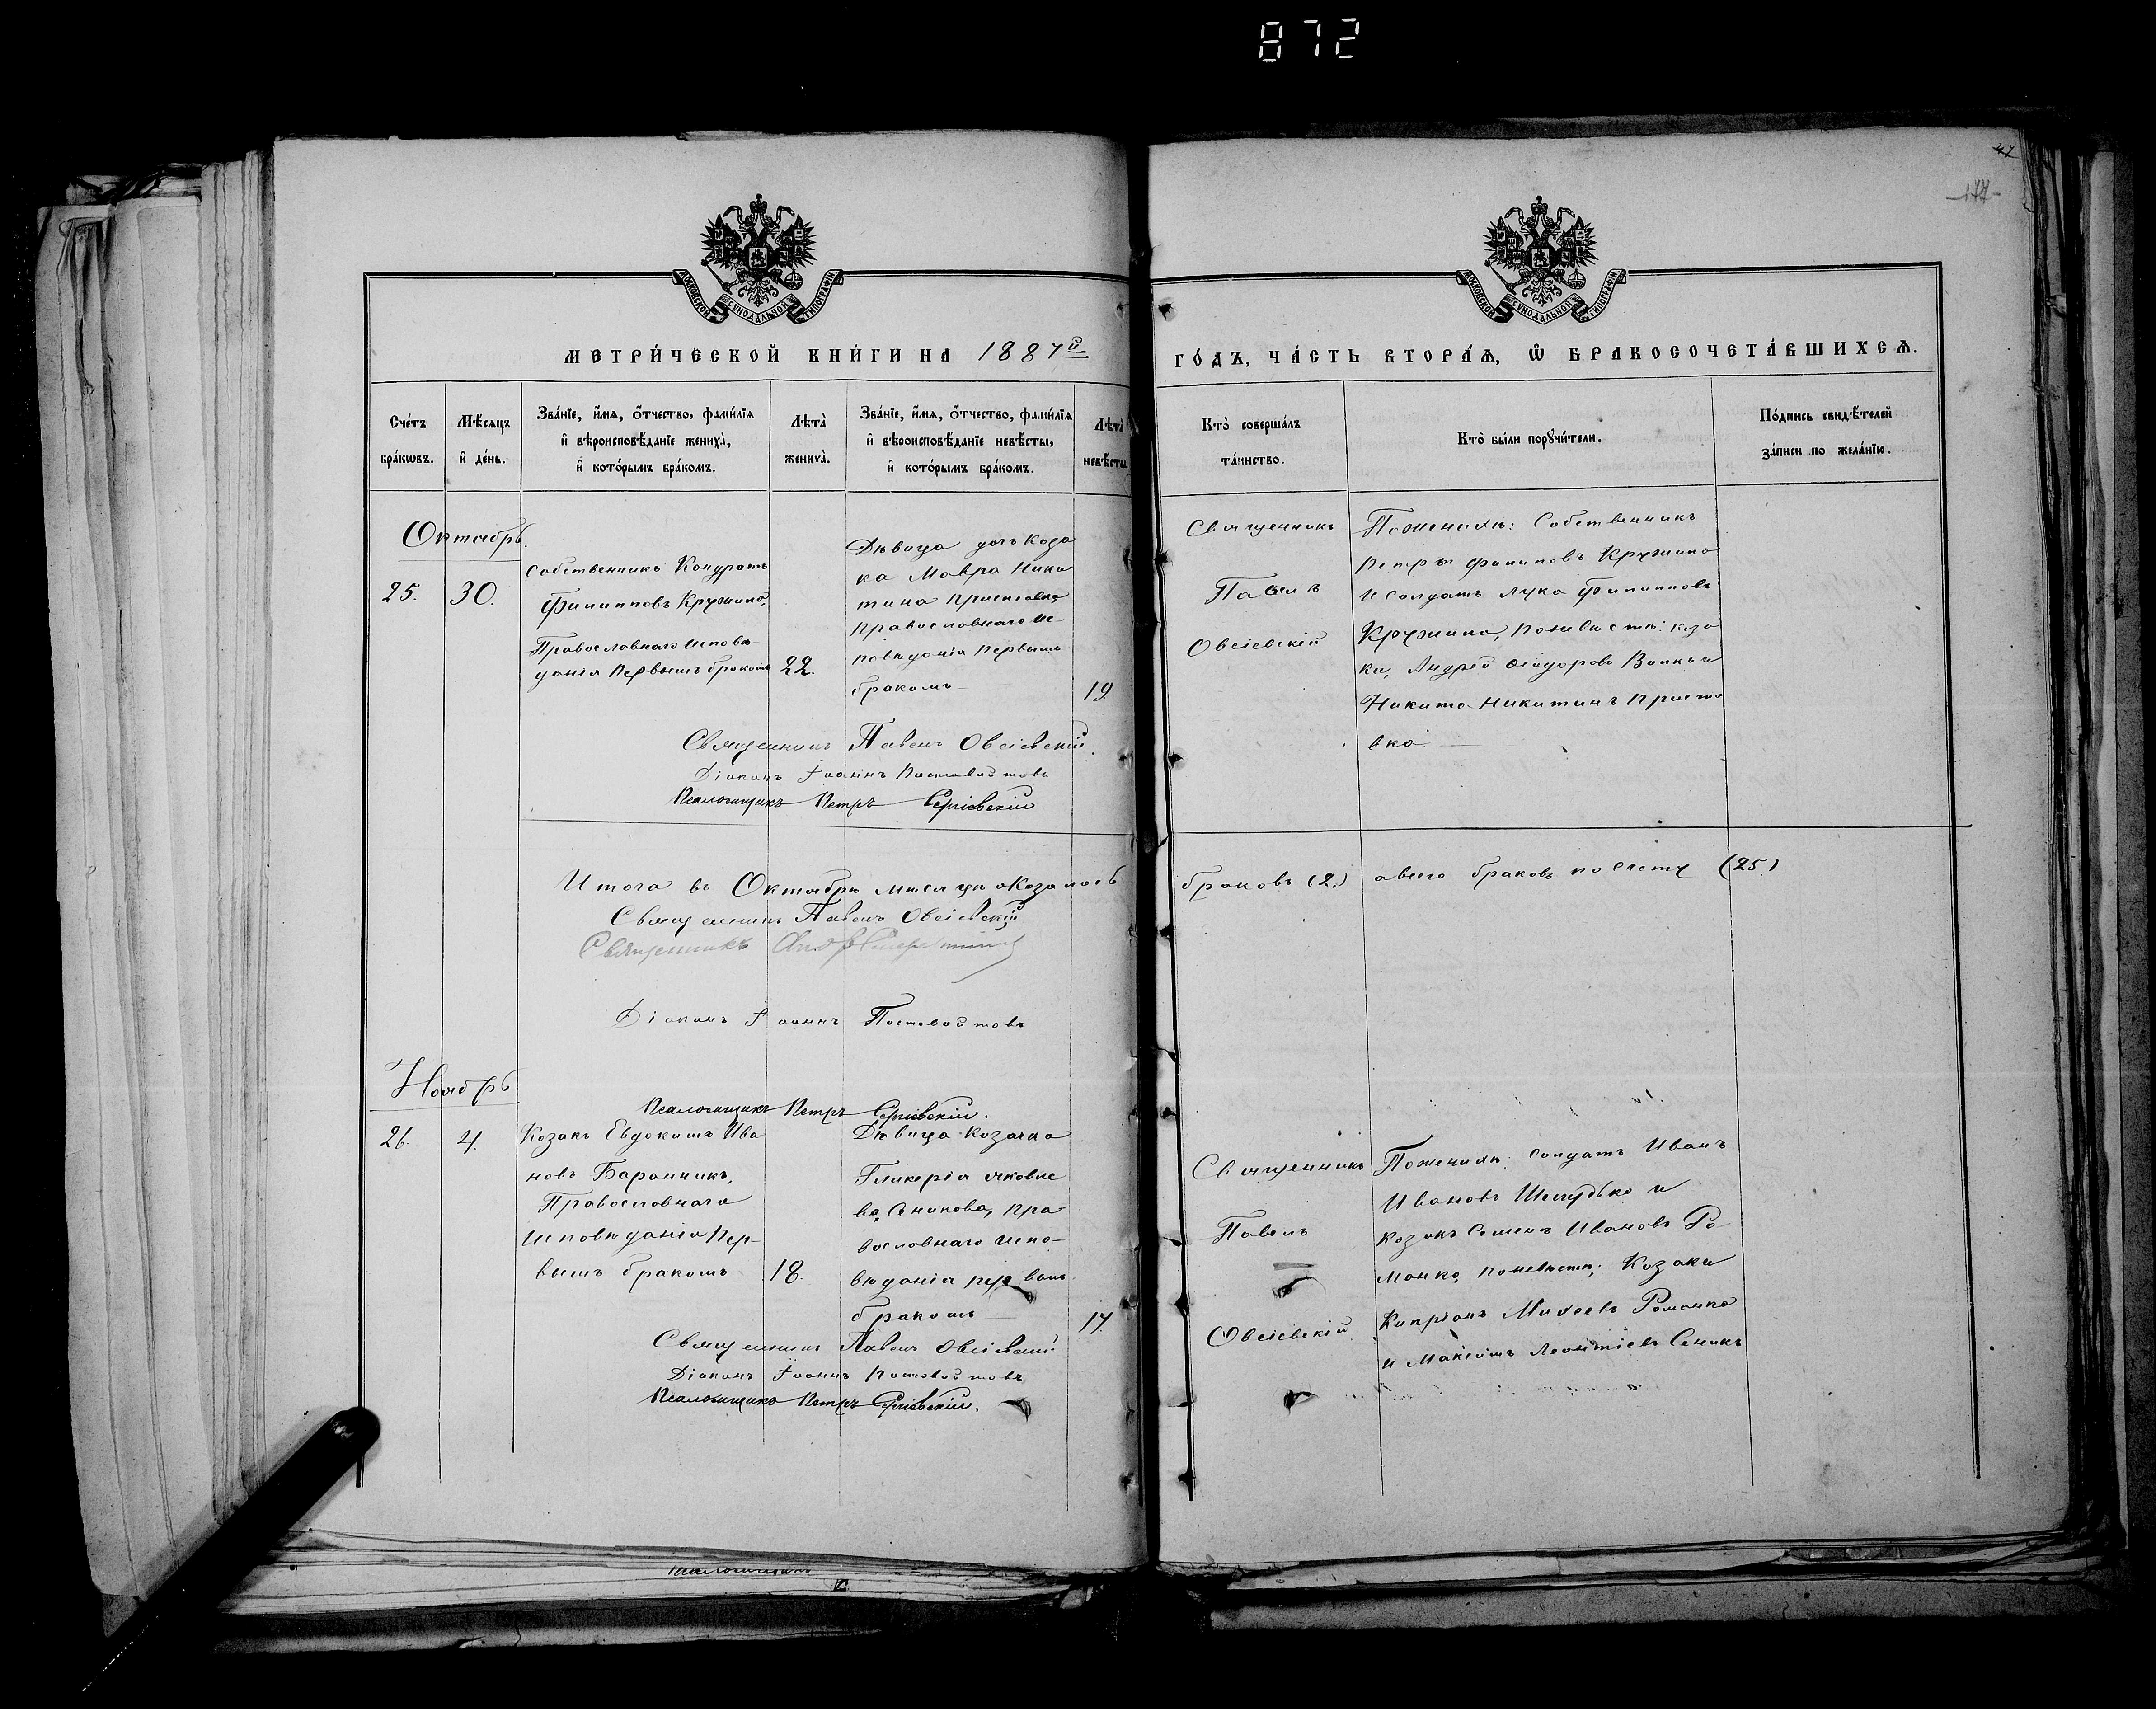 872
47
177
МОСКОВСКОЙ СѴНОДАЛЬНОЙ ТИПОГРАФІИ
МОСКОВСКОЙ СѴНОДАЛЬНОЙ ТИПОГРАФІИ
МЕТРИ́ЧЕСКОЙ КНИ́ГИ НА 1887й
ГО́ДЪ, ЧА́СТЬ ВТОРА́Ѧ, Ѽ БРАКОСОЧЕТА́ВШИХСѦ.
Сче́тъ
бра́кωвъ.
Мѣ́сѧцъ
и҆ де́нь.
Зва́нїе, и҆́мѧ, ѻ҆́тчество, фами́лїѧ
и҆ вѣроисповѣ́данїе жениха̀,
и҆ кото́рымъ бра́комъ.
Лѣта̀
жениха̀.
Зва́нїе, и҆́мѧ, ѻ҆́тчество, фами́лїѧ
и҆ вѣроисповѣ́данїе невѣ́сты,
и҆ кото́рымъ бра́комъ.
Лѣта̀
невѣ́сты.
Кто̀ соверша́лъ
та́инство.
Кто̀ бы́ли порꙋчи́тели.
По́дпись свидѣ́телей
за́писи по жела́нїю.
Октябрь.
25.
30.
Собственникъ Кондратъ
Филипповъ Кружило,
Православнаго Исповѣ-
данія Первымъ бракомъ
22.
Дѣвица дочь Коза
ка Мавра Ники
тина Приставка
Православнаго Ис-
повѣданія Первымъ
бракомъ
19
Священникъ
Павелъ
Овсіевскій
Поженихѣ: Собственникъ
Петръ Филиповъ Кружило
и Солдатъ Лука Филипповъ
Кружило, поневѣстѣ: каза
ки, Андрей Ѳіодоровъ Волкъ и
Никита Никитинъ Приста
вка
Священникъ Павелъ Овсіевскій.
Діаконъ Іоаннъ Постовойтовъ
Псаломщикъ Петръ Сергіевскій
Итого въ Октябрѣ мѣсяцѣ оказалось
браковъ (2.) авсего браковъ по счету (25.)
Священникъ Павелъ Овсіевскій
Священникъ
Діаконъ Іоаннъ Постовойтовъ
Псаломщикъ Петръ Сергіевскій.
Ноябрь
26.
4.
Козакъ Евдокимъ Ива
новъ Баранникъ,
Православнаго
Исповѣданія Пер-
вымъ бракомъ
18.
Дѣвица Козачка
Гликерія Яковле
ва Сѣникова, Пра
вославнаго Испо-
вѣданія первымъ
бракомъ
17.
Священникъ
Павелъ
Овсіевскій
Поженихѣ: Солдатъ Иванъ
Ивановъ и
Козакъ Семенъ Ивановъ Ро-
манко, поневѣстѣ; Козаки
Кипріанъ Михеевъ Романко
и Максимъ Леонтіевъ Сеникъ
Священникъ Павелъ Овсіевскій
Діаконъ Іоаннъ Постовойтовъ
Псаломщикъ Петръ Сергіевскій.